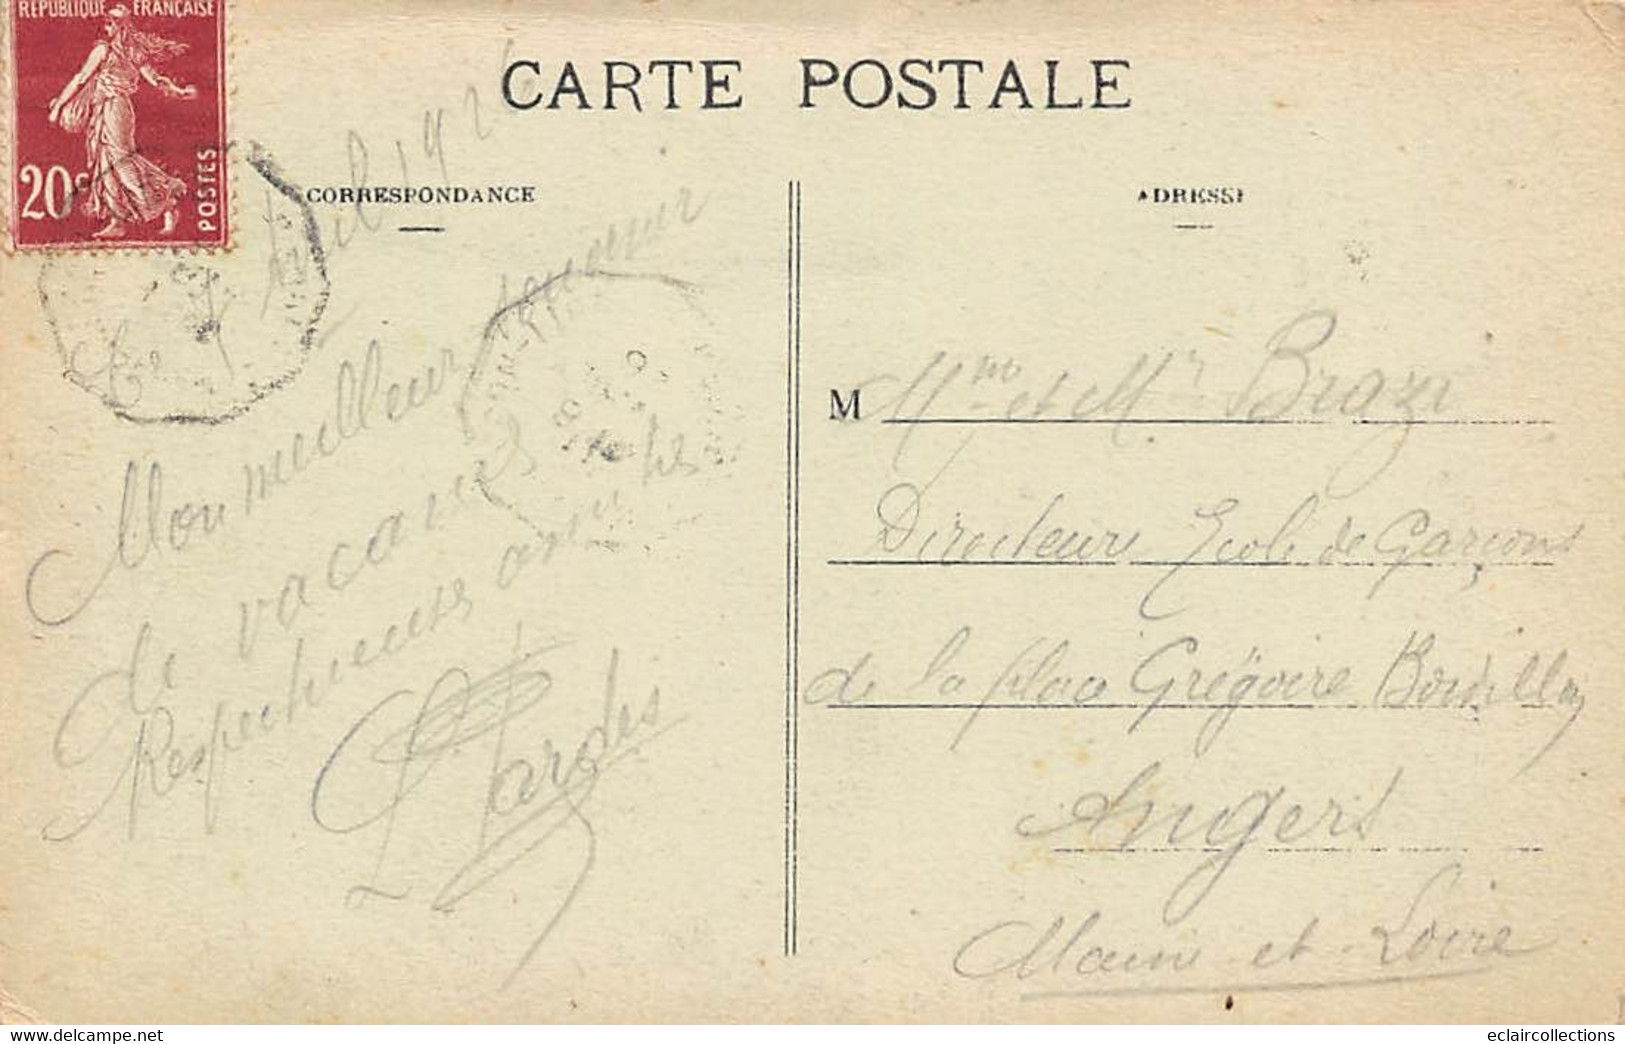 RÉPUBLIQUE FRANÇAISE
20c
POSTES
CARTE POSTALE
CORRESPONDANCE
ADRESSE
Avril 1926
Mon meilleur souvenir
de vacances
Respectueuses amitiés
Pardes
M Mme et Mr Brazi
Directeur Ecole de Garçons
de la place Grégoire Bordillon
Angers
Maine et Loire
www.delcampe.net
eclaircollections